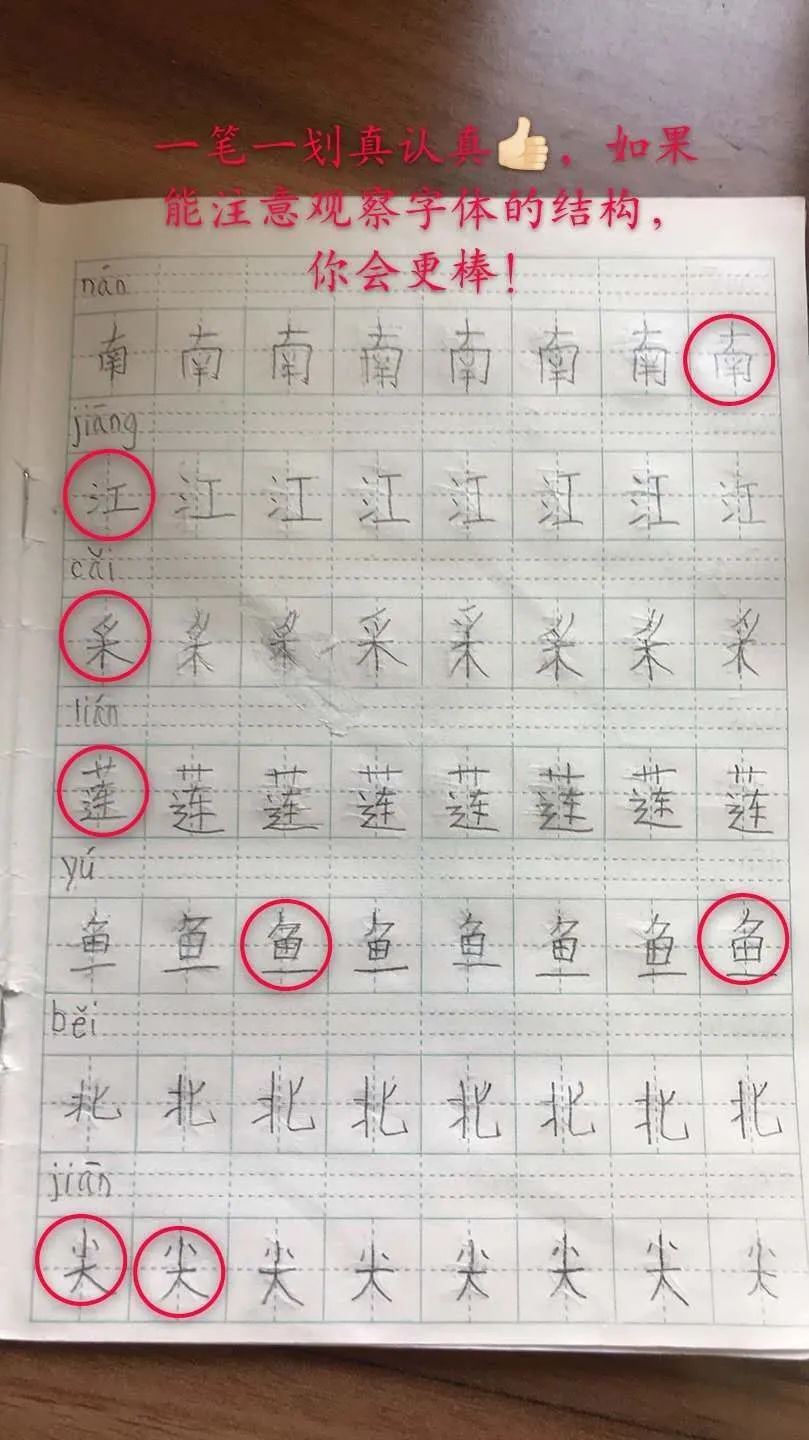 一笔一划真认真👍，如果
能注意观察字体的结构，
你会更棒！
nán
南 南 南 南 南 南 南 南
jiāng
江 江 江 江 江 江 江 江
cǎi
采 采 采 采 采 采 采 采
lián
莲 莲 莲 莲 莲 莲 莲 莲
yú
鱼 鱼 鱼 鱼 鱼 鱼 鱼 鱼
běi
北 北 北 北 北 北 北 北
jiān
尖 尖 尖 尖 尖 尖 尖 尖